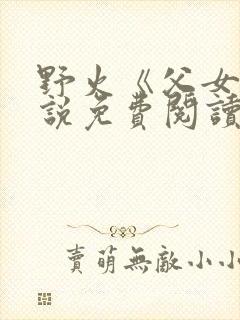 野火《父女
說免費閱讀
賣萌無敵小小